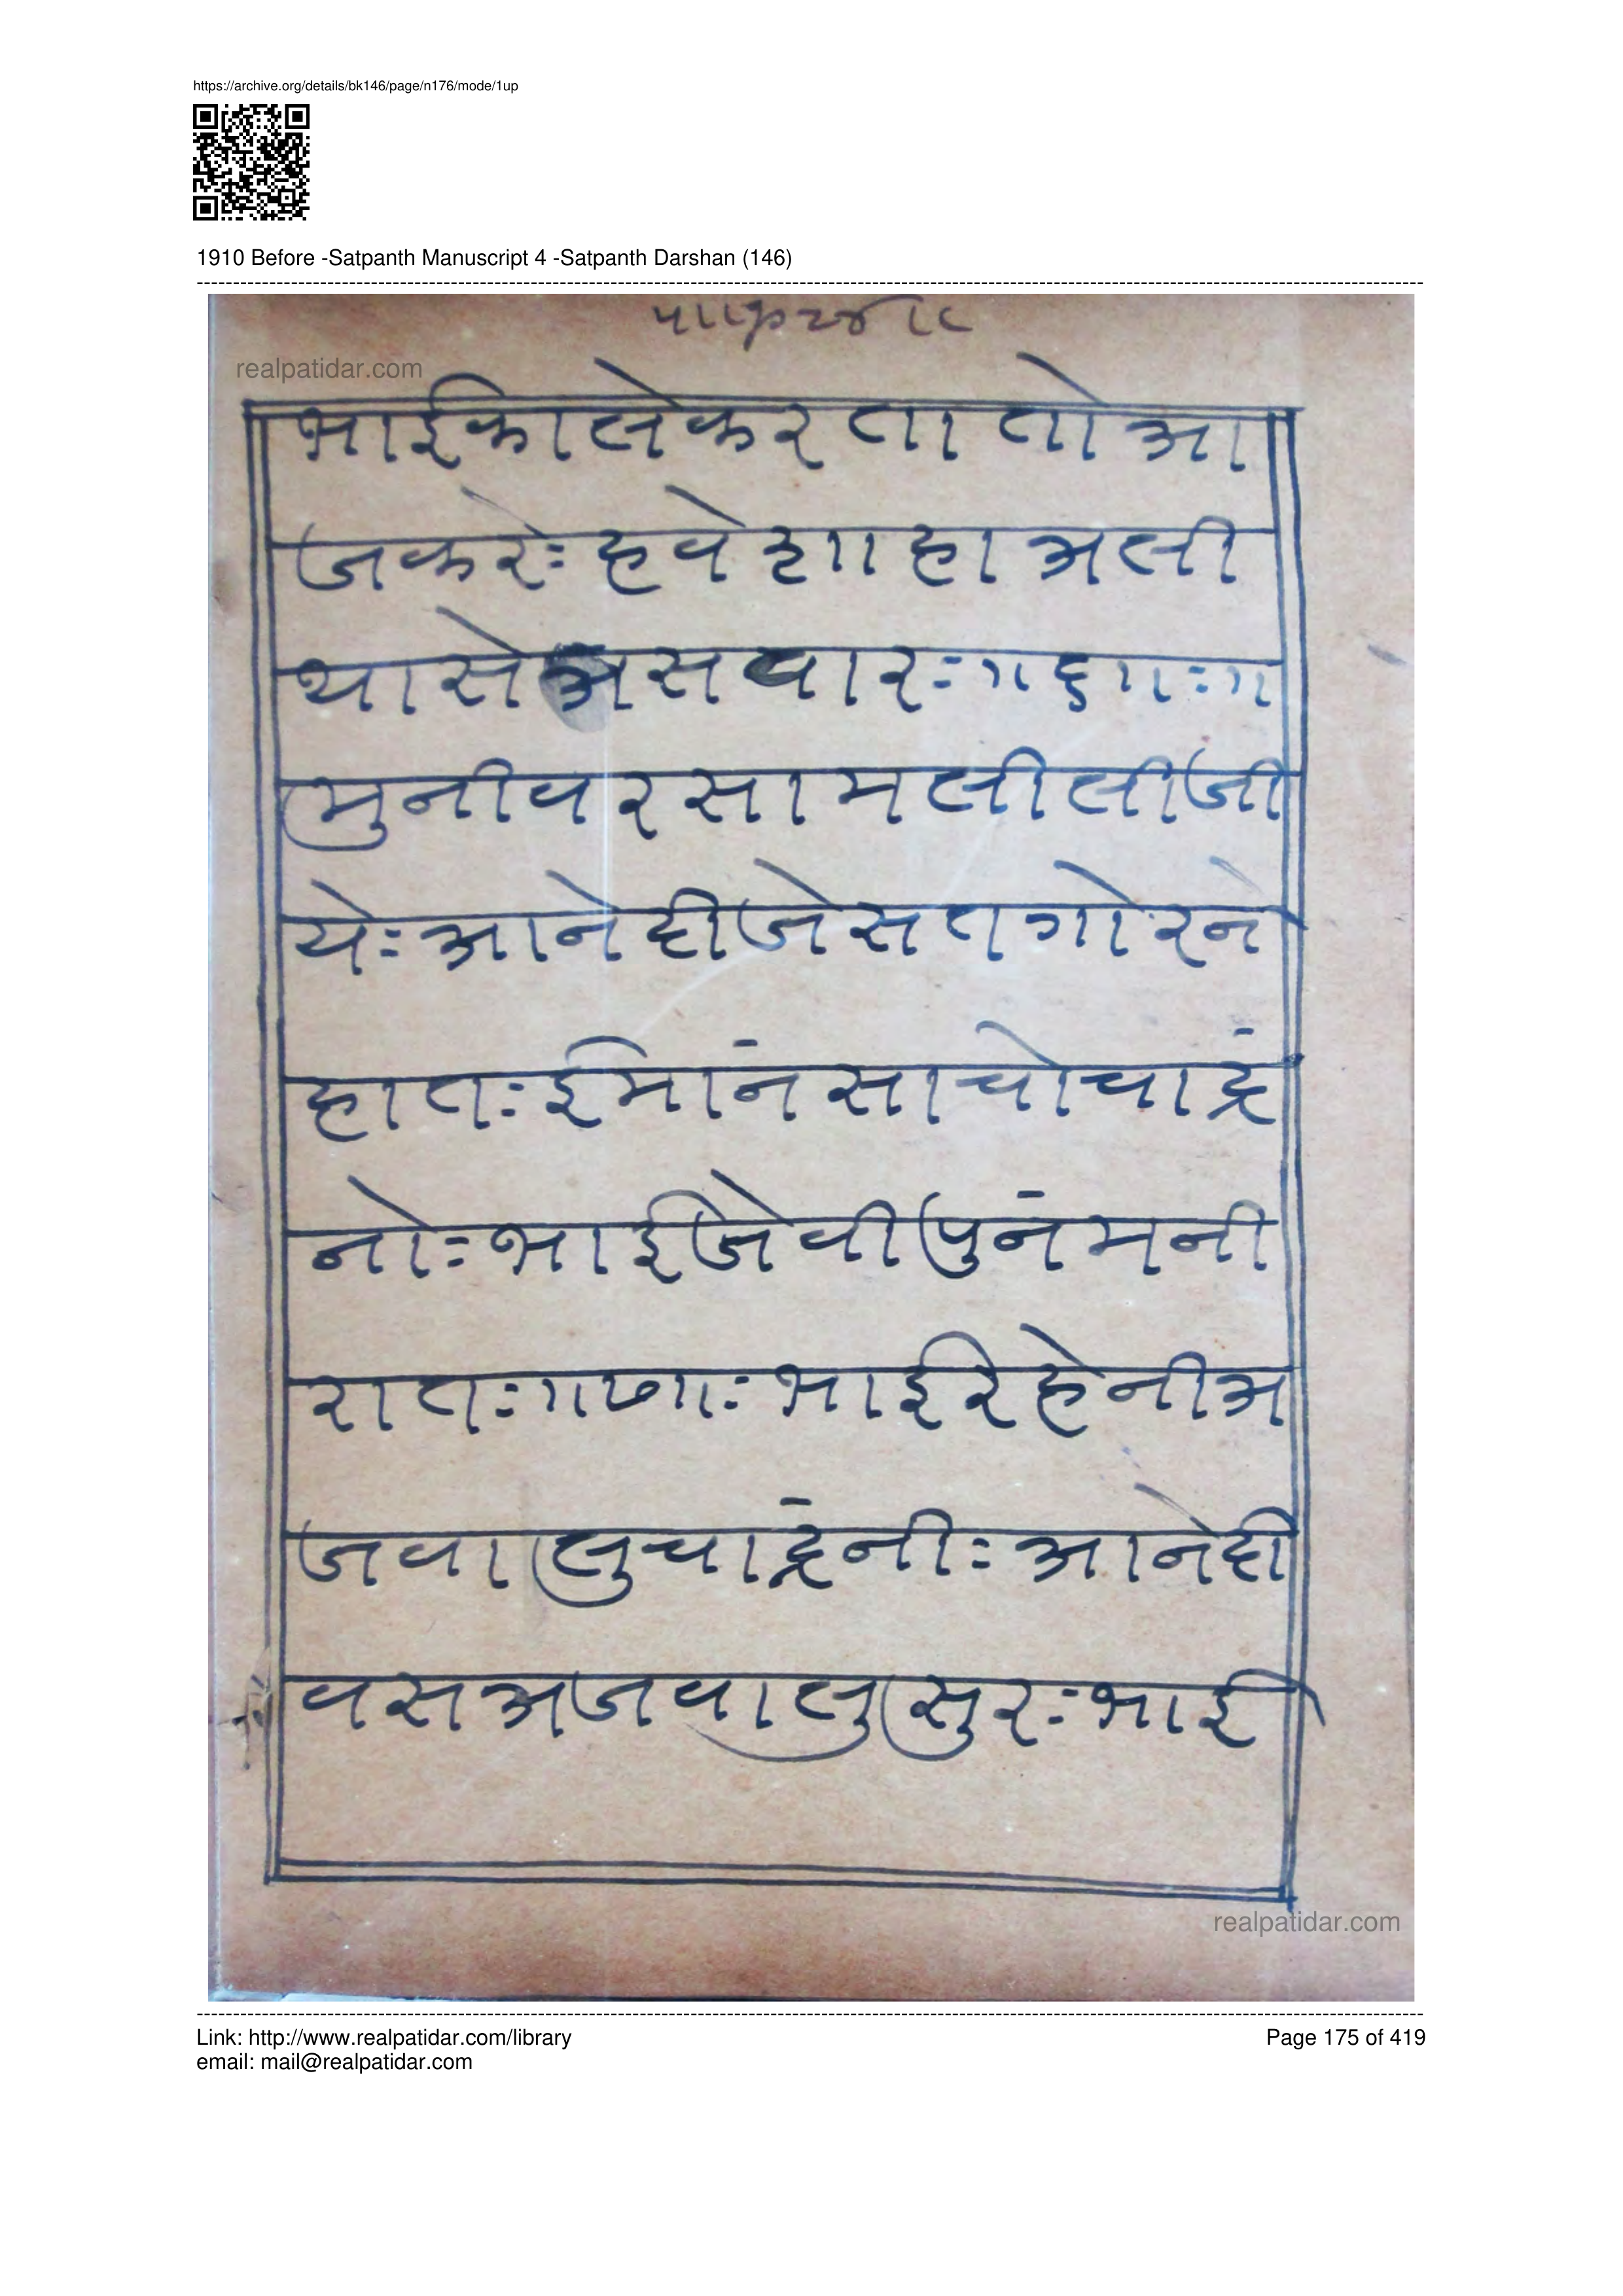 https://archive.org/details/bk146/page/n176/mode/1up
1910 Before -Satpanth Manuscript 4 -Satpanth Darshan (146)
realpatidar.com
भाईकालेकरतातोआ
जकरेः हवेशाहाअली
थासेअसवारः ॥६॥ः॥
मुनीवरसामलीलीजी
येः आनेदीजेसतगोरने
हातः ईमांनसाचोचाद्रं
नोः भाईजेवीपुनंमनी
रातः ॥७॥ः भाईरेहेनीअ
जवालुचाद्रंनीः आनेदी
वसअजवालुसुरः भाई
realpatidar.com
Link: http://www.realpatidar.com/library
Page 175 of 419
email: mail@realpatidar.com